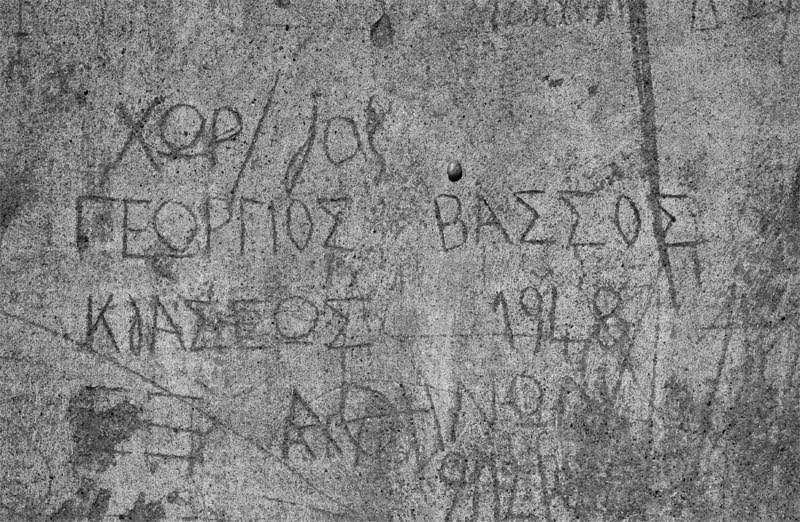 ΧΩΡ/
ΓΕΩΡΓΙΟΣ ΒΑΣΣΟΣ
ΚΛΑΣΕΩΣ 1948
ΕΞ ΑΘΗΝΩΝ